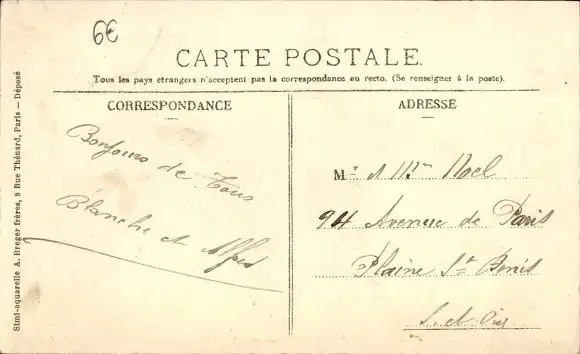 6€
CARTE POSTALE.
Tous les pays étrangers n'acceptent pas la correspondance au recto. (Se renseigner à la poste).
CORRESPONDANCE
Bonjours de Tous
Blanche et Alfred
ADRESSE
M. & Mme Noel
94 Avenue de Paris
Plaine St Denis
S. et Oise
Simi-aquarelle A. Breger frères, 9 Rue Thénard, Paris — Déposé